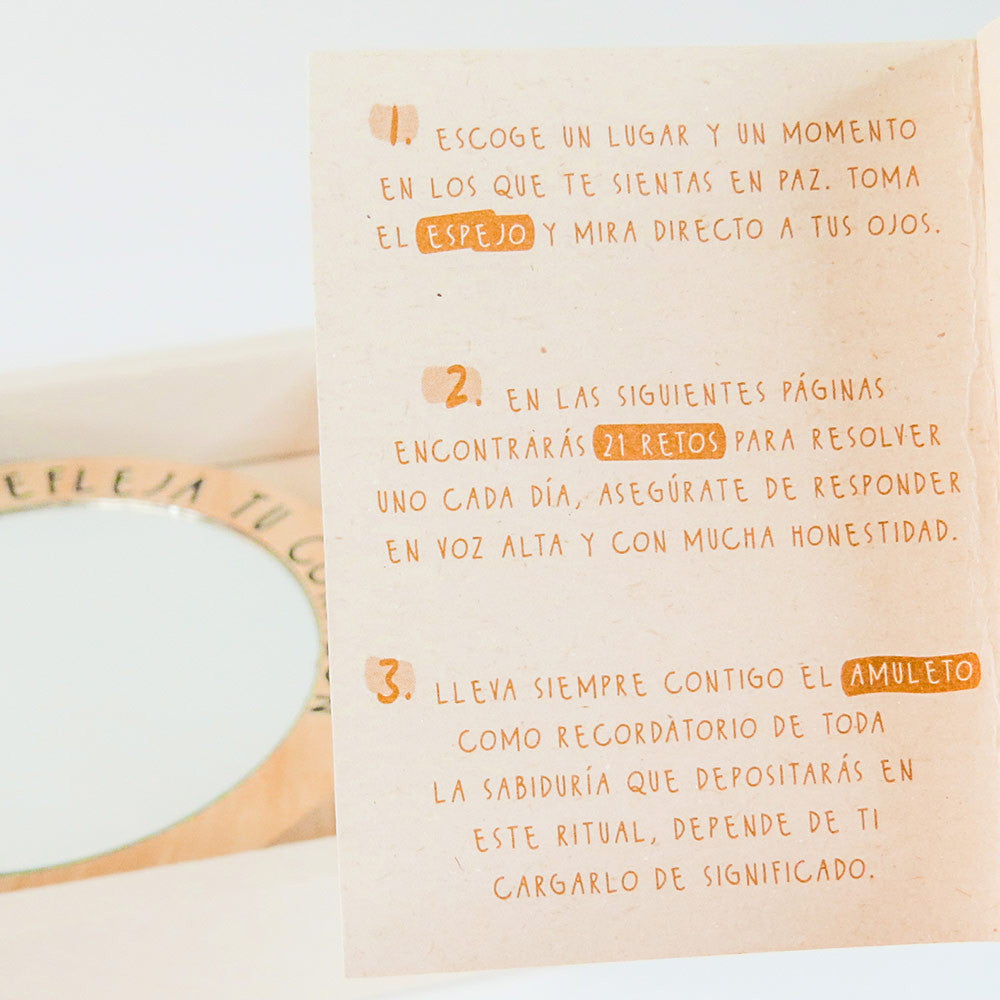 1. ESCOGE UN LUGAR Y UN MOMENTO
EN LOS QUE TE SIENTAS EN PAZ. TOMA
EL ESPEJO Y MIRA DIRECTO A TUS OJOS.
2. EN LAS SIGUIENTES PÁGINAS
ENCONTRARÁS 21 RETOS PARA RESOLVER
UNO CADA DÍA, ASEGÚRATE DE RESPONDER
EN VOZ ALTA Y CON MUCHA HONESTIDAD.
3. LLEVA SIEMPRE CONTIGO EL AMULETO
COMO RECORDATORIO DE TODA
LA SABIDURÍA QUE DEPOSITARÁS EN
ESTE RITUAL, DEPENDE DE TI
CARGARLO DE SIGNIFICADO.
EFLEJA TU